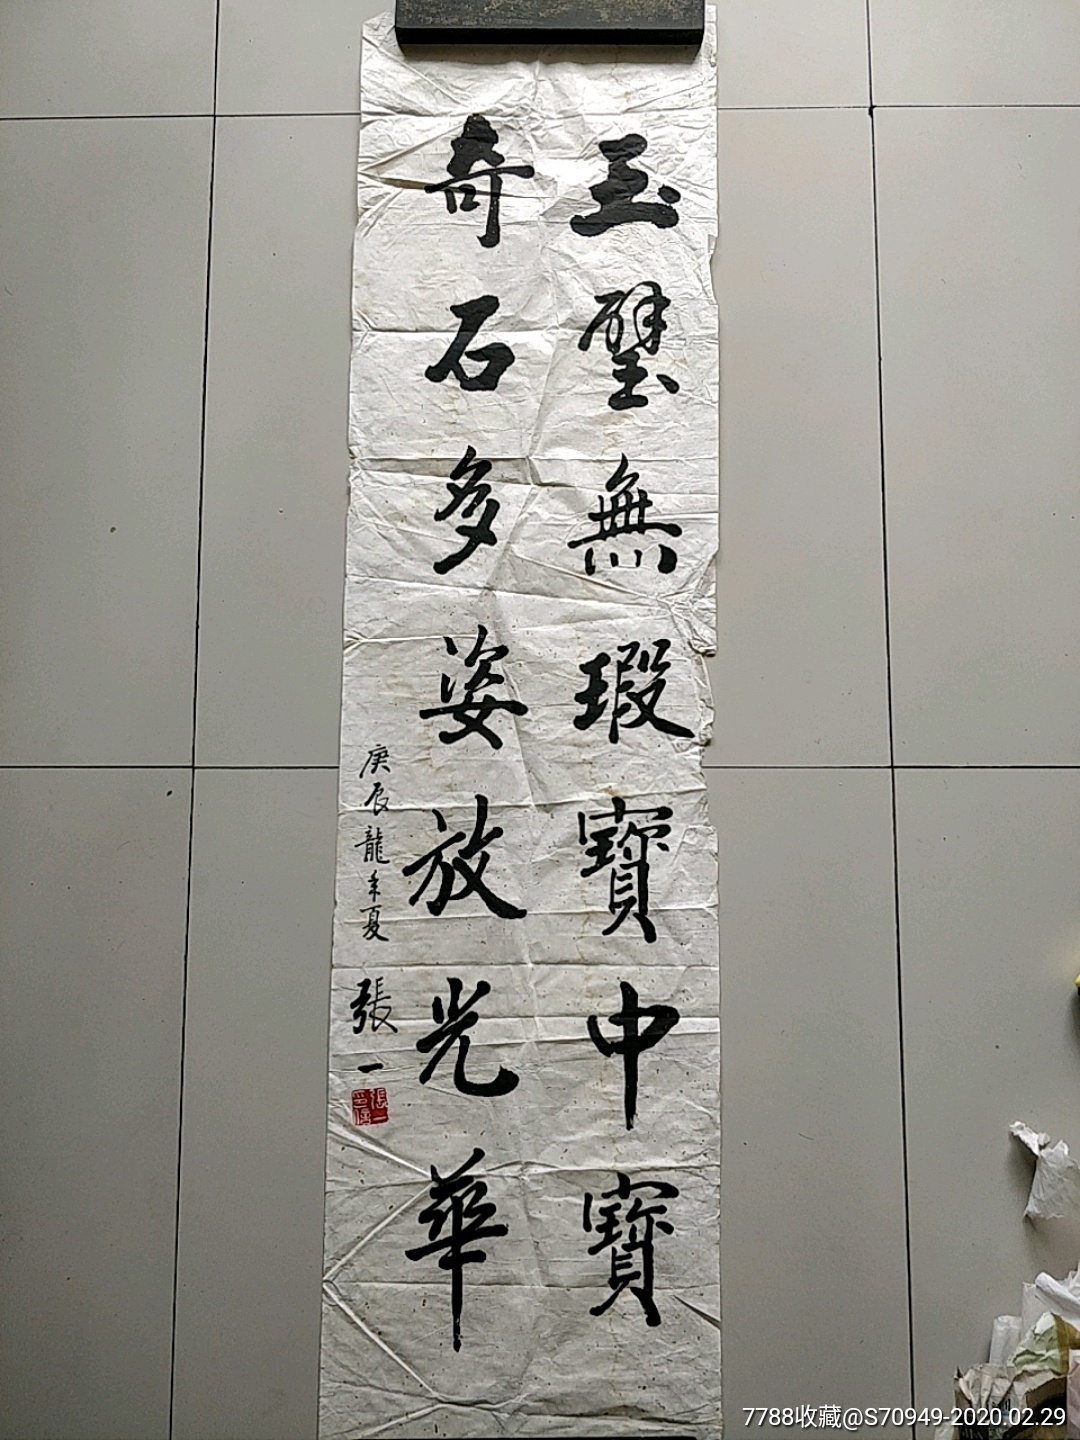 玉璧無瑕寶中寶
奇石多姿放光華
庚辰龍年夏
張一
張一印信
7788收藏@S70949-2020.02.29